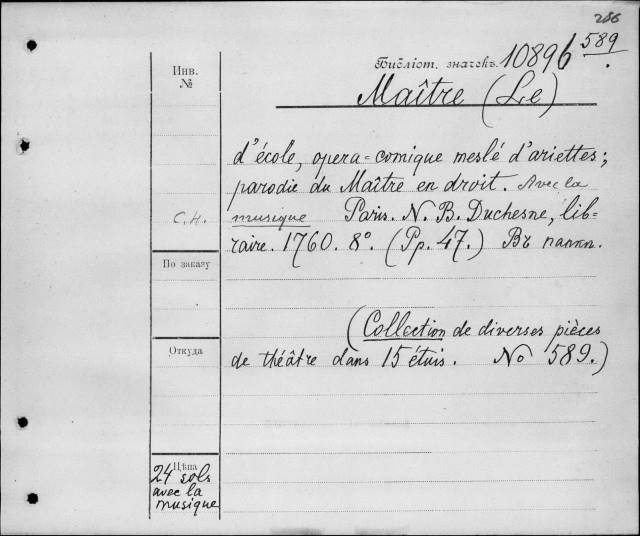 286
Библіот. значекъ. 10896 589.
Инв.
№
Maître (Le)
d'école, opera=comique meslé d'ariettes;
parodie du Maître en droit. Avec la
С.Н. musique Paris. N. B. Duchesne, lib=
raire. 1760. 8°. (Pp. 47.) Въ папкѣ.
По заказу
(Collection de diverses pièces
Откуда
de théâtre dans 15 étuis. No 589.)
Цѣна
24 sols
avec la
musique